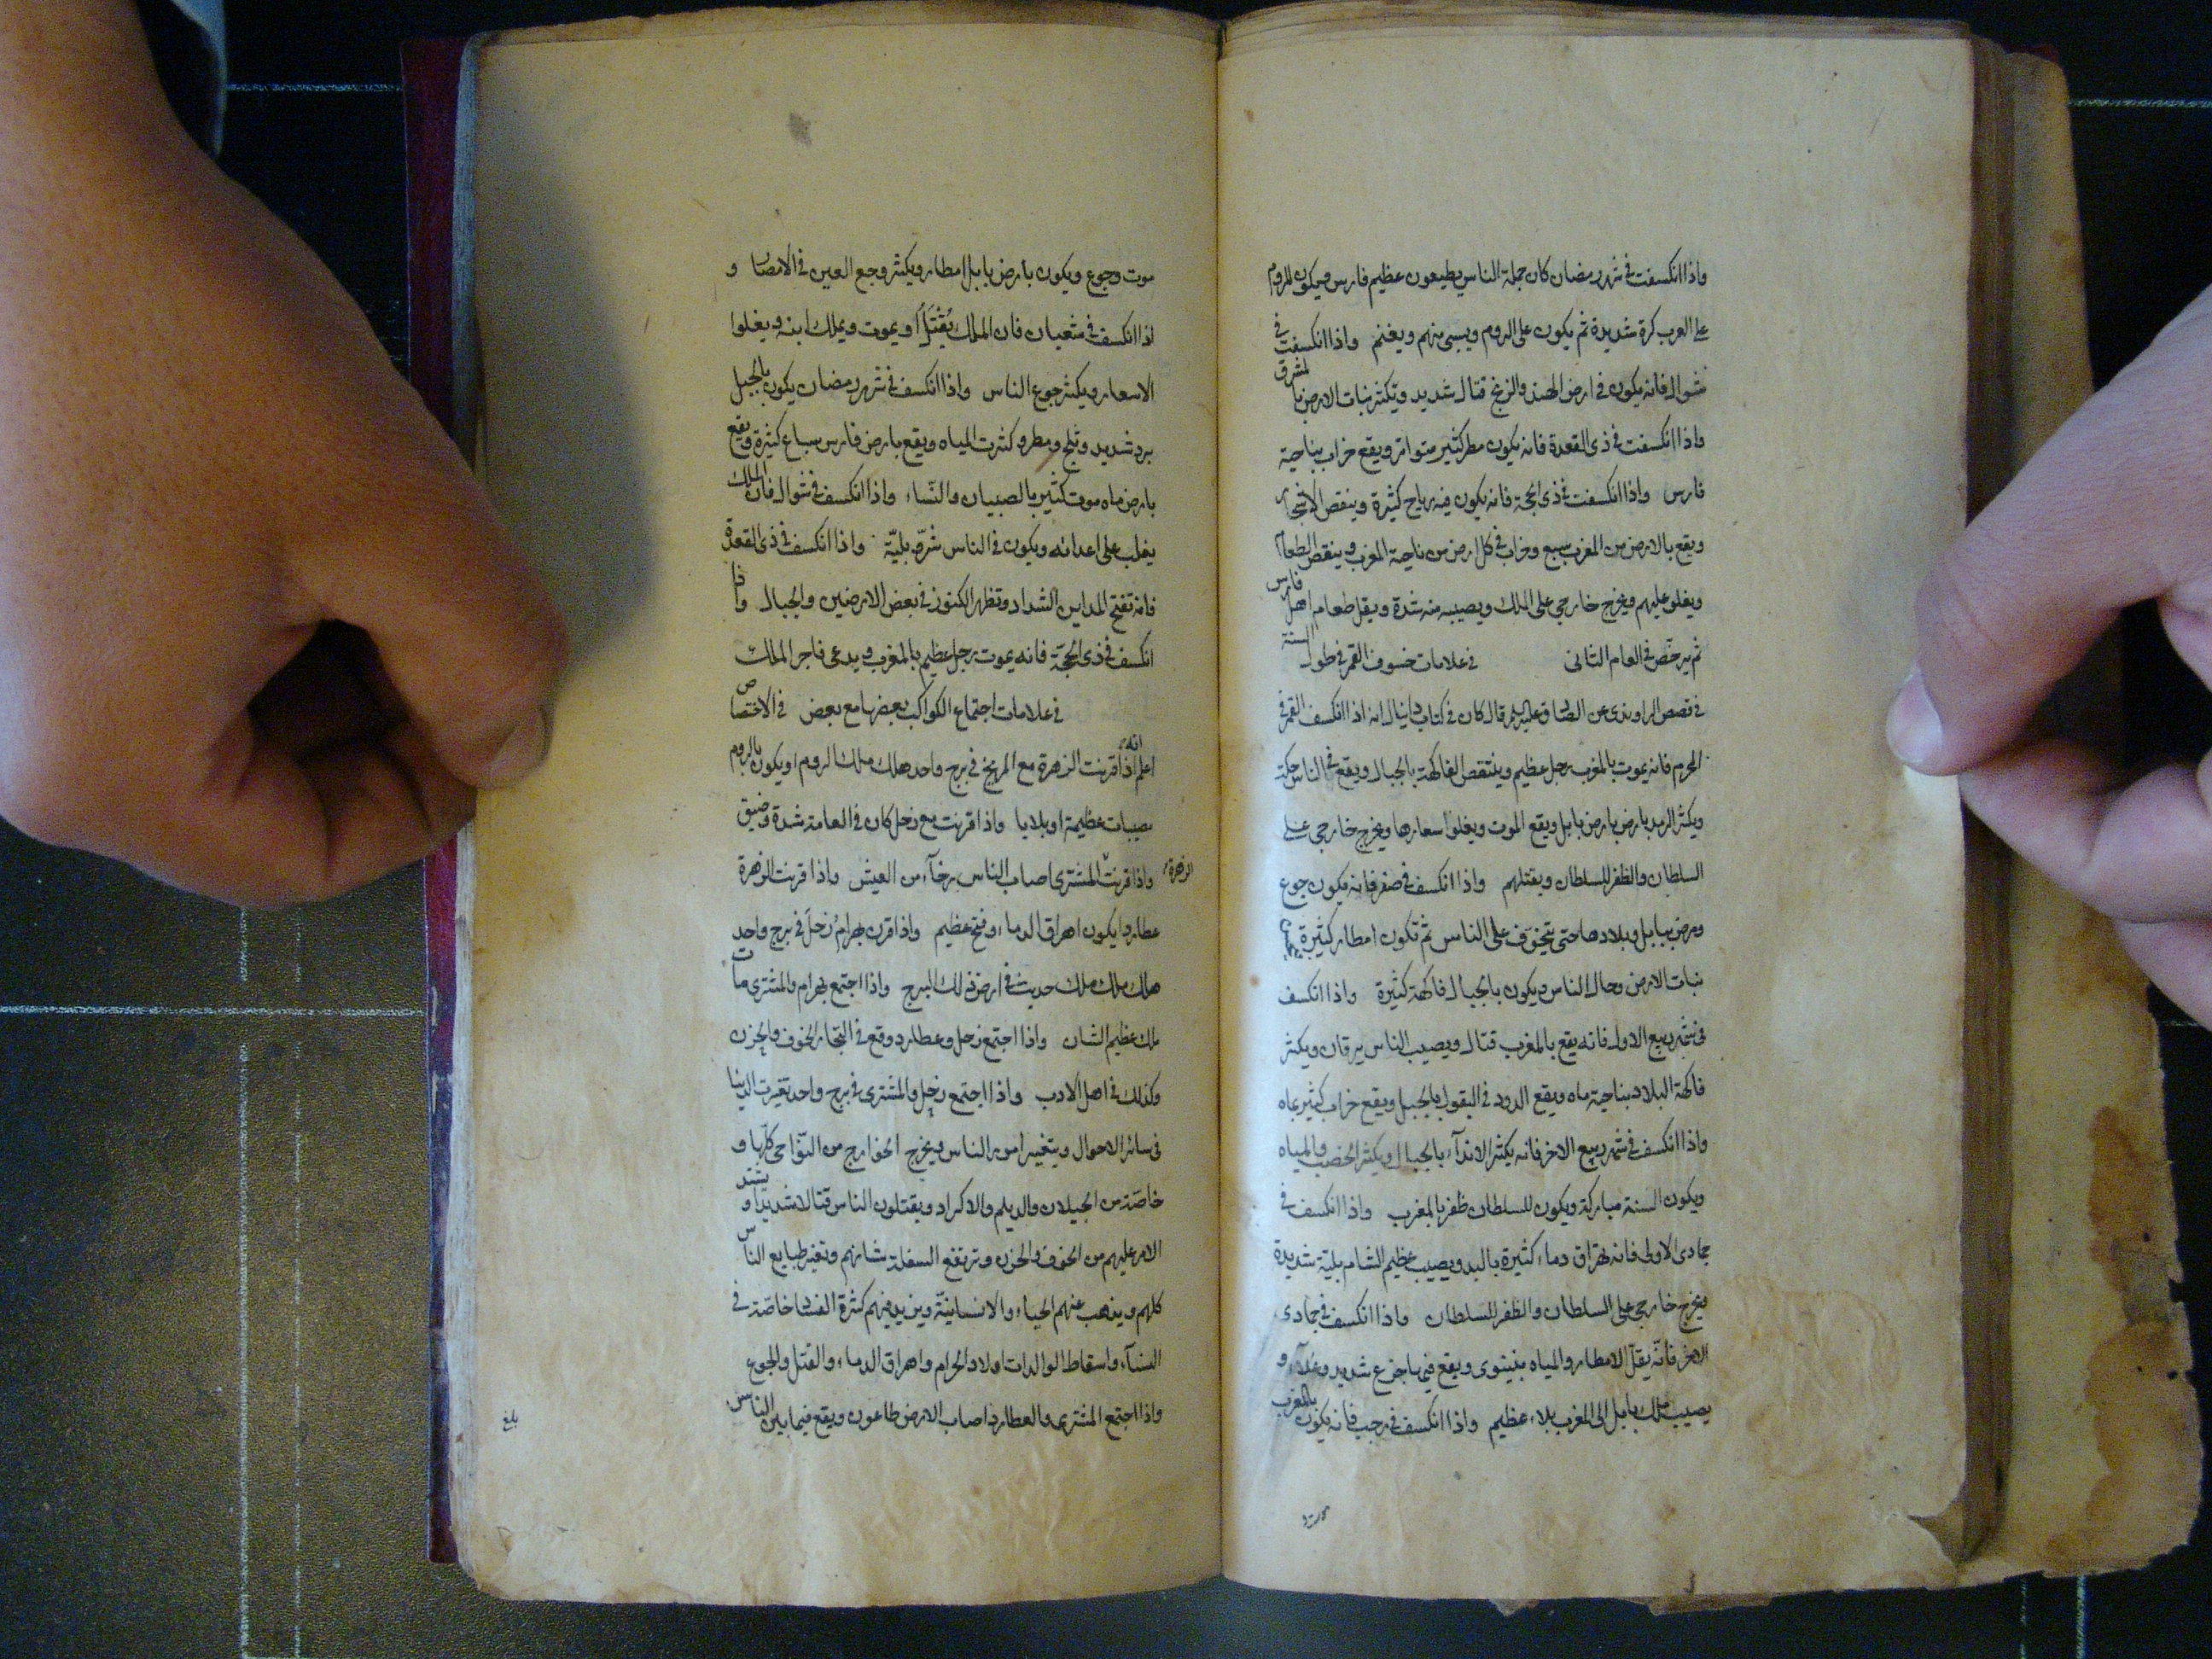 واذا انكسفت فى شهر رمضان كان جملة الناس يطيعون عظيم فارس ويكون للروم
على العرب كرة شديدة ثم يكون على الروم ويسبى منهم ويغنم واذا انكسفت فى
شوال فانه يكون فى ارض الهند والزنج قتال شديد ويكثر نبات الارض بالمشرق
واذا انكسفت فى ذى القعدة فانه يكون مطر كثير متواتر ويقع خراب بناحية
فارس واذا انكسفت فى ذى الحجة فانه يكون فيه رياح كثيرة وينقص الاشجار
ويقع بالارض من المغرب سبع وخراب فى كل ارض من ناحية المغرب وينقص الطعام
ويغلو عليهم ويخرج خارجى على الملك ويصيبه منه شدة ويقل طعام اهل فارس
ثم يرخص فى العام الثانى فى علامات خسوف القمر فى طول السنة
فى قصص الراوندى عن الصادق قال كان فى كتاب دانيال انه اذا انكسف القمر فى
المحرم فانه يموت بالمغرب رجل عظيم وينتقص الفاكهة بالجبال ويقع فى الناس حكة
ويكثر الرمد بارض بارض بابل ويقع الموت ويغلوا سعارها ويخرج خارجى على
السلطان والظفر للسلطان ويقتلهم واذا انكسف فى صفر فانه يكون جوع
ومرض ببابل وبلادها حتى يتخوف على الناس ثم تكون امطار كثيرة
نبات الارض وحال الناس ويكون بالجبال فاكهة كثيرة واذا انكسف
فى شهر ربيع الاول فانه يقع بالمغرب قتال ويصيب الناس يرقان ويكثر
فاكهة البلاد بناحية ماه ويقع الدود فى البقول بالجبل ويقع خراب كثير بماه
واذا انكسف فى شهر ربيع الاخر فانه يكثر الانداء بالجبال ويكثر الخصب والمياه
ويكون السنة مباركة ويكون للسلطان ظفر بالمغرب واذا انكسف فى
جمادى الاولى فانه تهراق دماء كثيرة بالبدو ويصيب عظيم الشام بلية شديدة
ويخرج خارجى على السلطان والظفر للسلطان واذا انكسف فى جمادى
الاخر فانّه يقلّ الامطار والمياه بنينوى ويقع فيها جزع شديد وغلاء و
يصيب ملك بابل الى المغرب بلاء عظيم واذا انكسف فى رجب فانه يكون بالمغرب
موت وجوع ويكون بارض بابل امطار ويكثر وجع العين فى الامصار و
اذا انكسف فى شعبان فان الملك يُقْتَلُ او يموت ويملك ابنه ويغلوا
الاسعار ويكثر جوع الناس واذا انكسف فى شهر رمضان يكون بالجبل
برد شديد وثلج ومطر وكثرت المياه ويقع بارض فارس سباع كثيرة ويقع
بارض ماه موت كثير بالصبيان والنّساء واذا انكسف فى شوال فان الملك
يغلب على اعدائه ويكون فى الناس شرّ وبليّة واذا انكسف فى ذى القعدة
فانه تفتح المداين الشداد وتظهر الكنوز فى بعض الارضين والجبال واذا
انكسف فى ذى الحجّة فانه يموت رجل عظيم بالمغرب ويدعى فاجر الملك
فى علامات اجتماع الكواكب بعضها مع بعض فى الاختصاص
اعلم انه اذا اقرنت الزهرة مع المريخ فى برج واحد هلك ملك الروم او يكون بالروم
مصيبات عظيمة او بلايا واذا قرنت مع زحل كان فى العامة شدة وضيق
واذا قرنت الزهرة المشترى اصاب الناس رخآء من العيش واذا قرنت الزهرة
عطاردا يكون اهراق الدماء وفتح عظيم واذا قرن بهرامُ زحلَ فى برج واحد
هلك ملك ملك حديث فى ارض ذلك البرج واذا اجتمع بهرام والمشترى مات
ملك عظيم الشان واذا اجتمع زحل وعطارد وقع فى التجار الخوف والحزن
وكذلك فى اهل الادب واذا اجتمع زحل والمشترى فى برج واحد تغيرت الدنيا
فى سائر الاحوال ويتغير امور الناس ويخرج الخوارج من النّواحى كلّها و
خاصّة من الجيلان والديلم والاكراد ويقتتلون الناس قتالا شديدا ويشتد
الامر عليهم من الخوف والحزن وترتفع السفلة بشانهم وتغير طبايع الناس
كلهم ويذهب عنهم الحياء والانسانيّة ويزيد فيهم كثرة الفساد خاصّة فى
النسآء واسقاط الوالدات اولاد الحرام واهراق الدماء والقتل والجوع
واذا اجتمع المشترى والعطارد اصاب الارض طاعون ويقع فيما بين الناس
بلغ